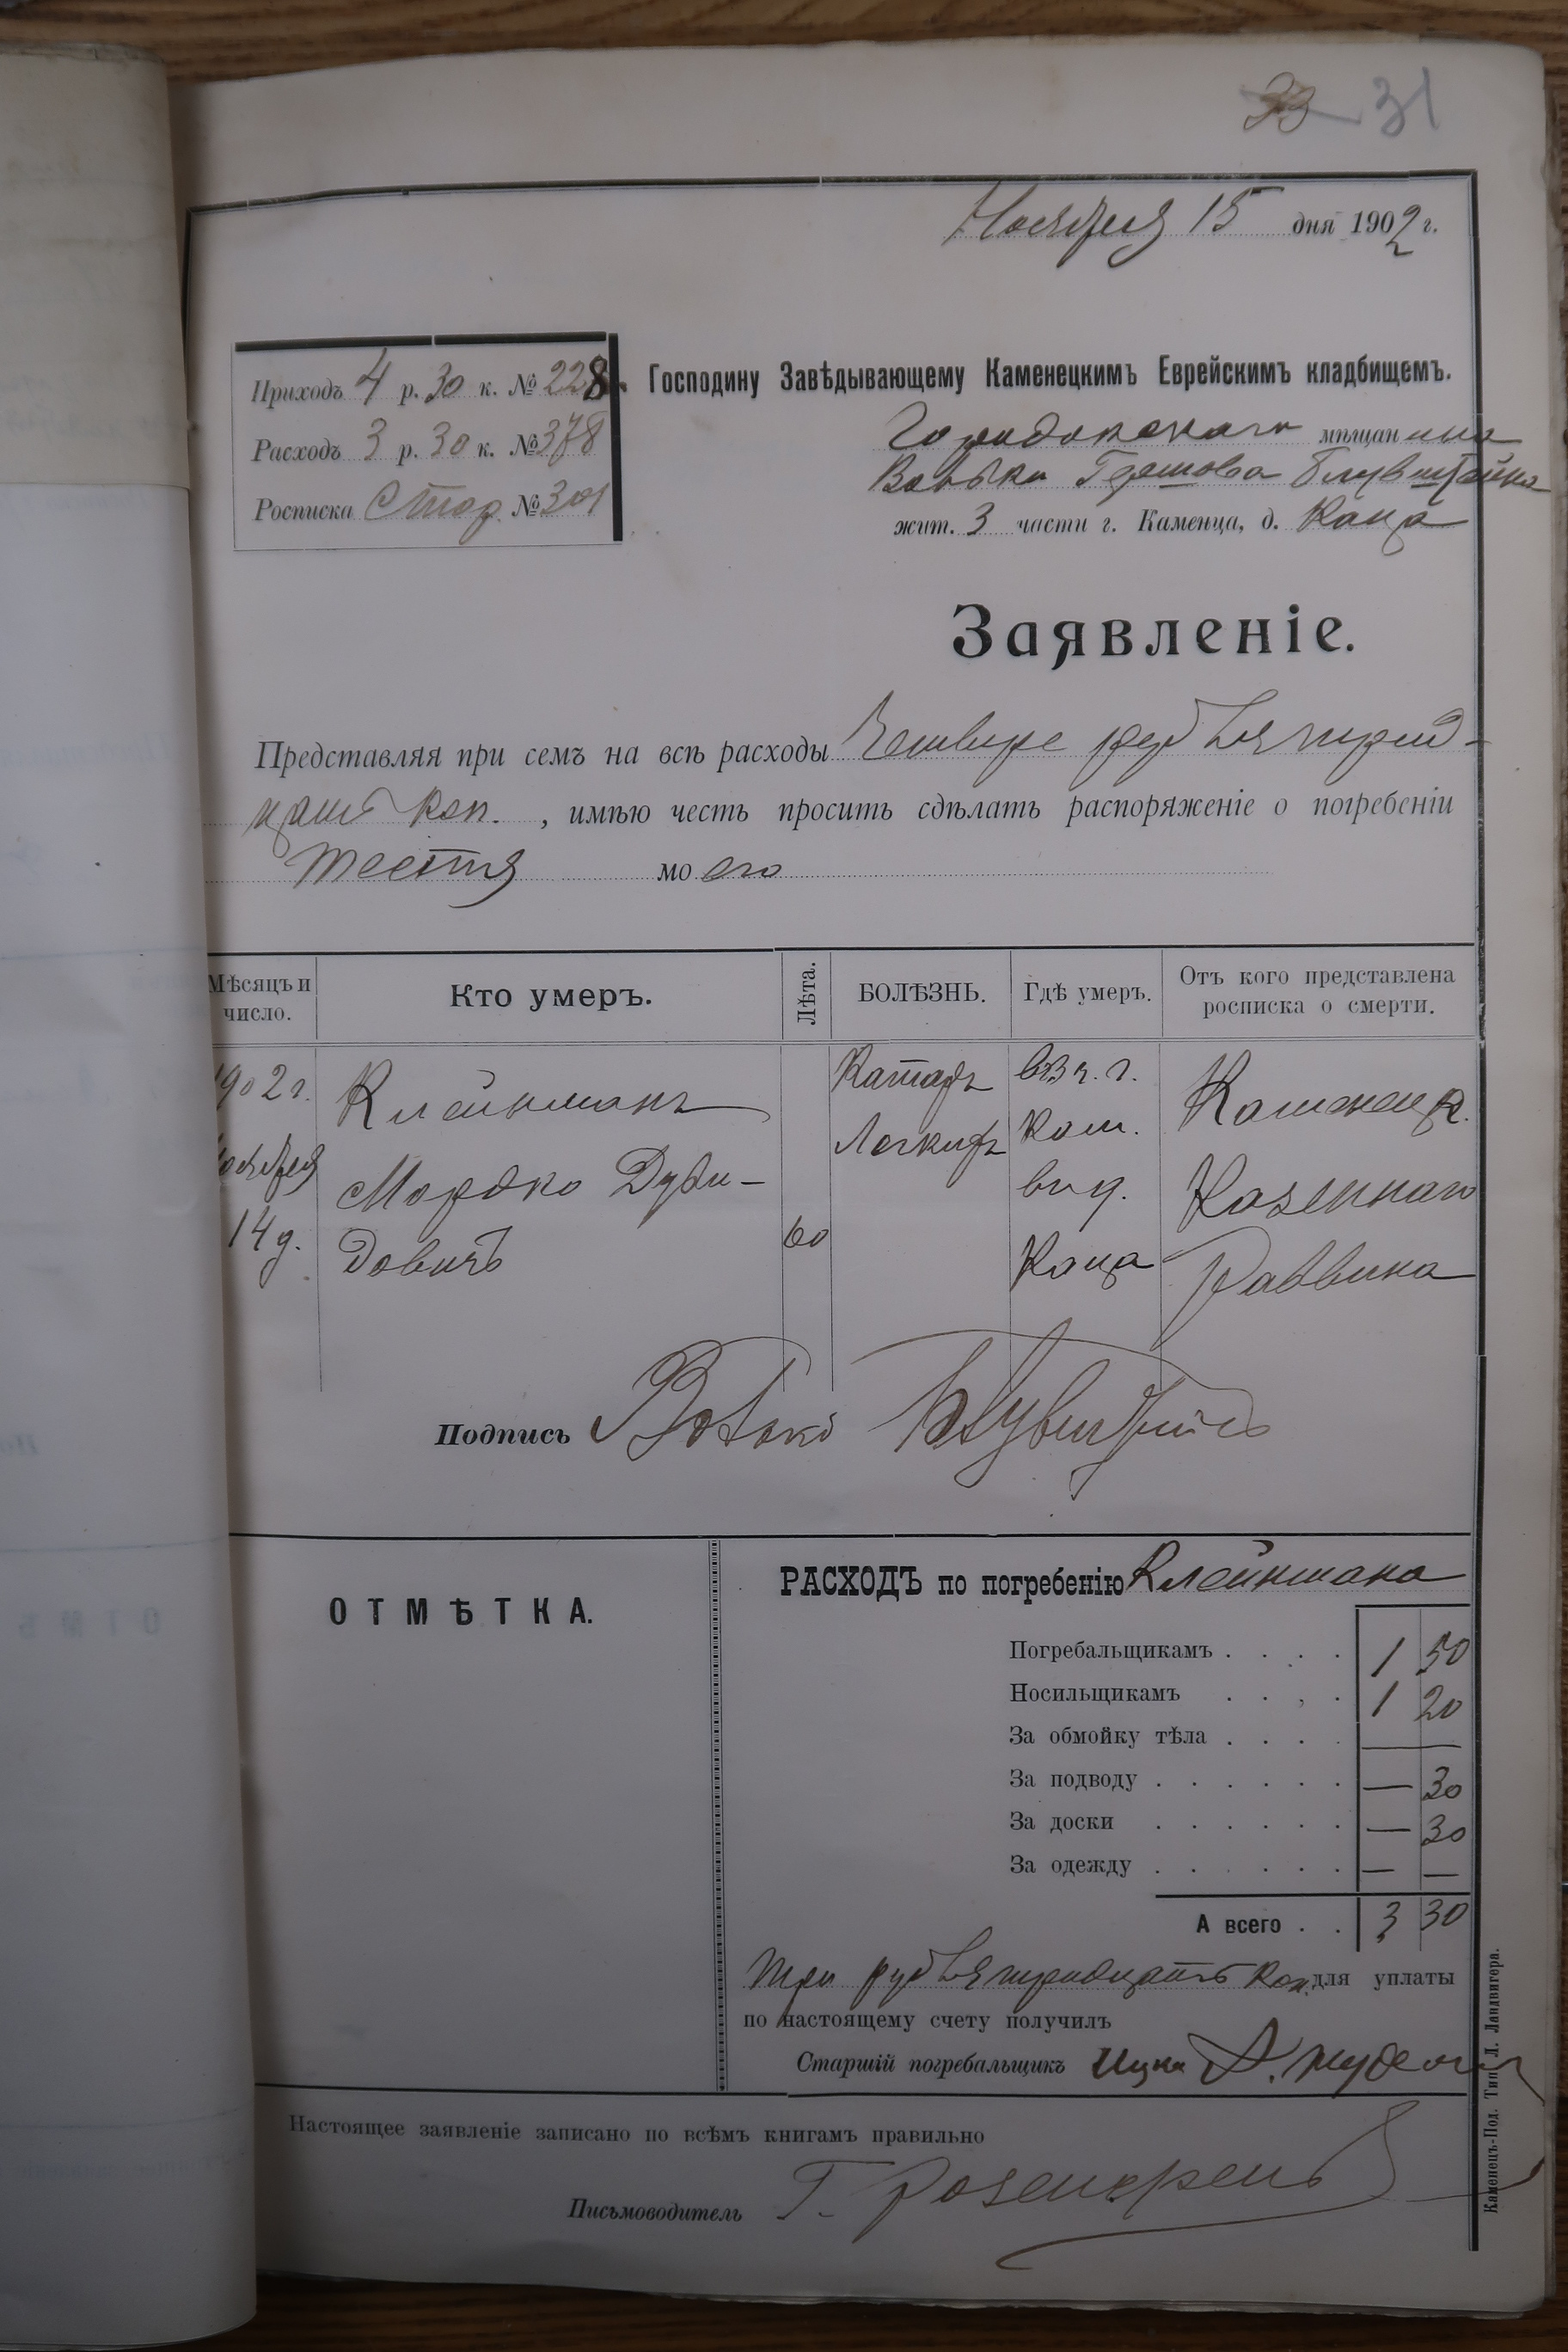 33 31
Ноября 15 дня 1902 г.
Приходъ 4 р. 30 к. № 228.
Расходъ 3 р. 30 к. № 378
Росписка Стор. № 301
Господину Завѣдывающему Каменецкимъ Еврейскимъ кладбищемъ.
Городокскаго мѣщанина
Вольки Гершова Блувштейна
жит. 3 части г. Каменца, д. Каца
Заявленіе.
Представляя при семъ на всѣ расходы Четыре рубля трид-
цать коп., имѣю честь просить сдѣлать распоряженіе о погребеніи
тестя моего
Мѣсяцъ и число. Кто умеръ. Лѣта. БОЛѢЗНЬ. Гдѣ умеръ. Отъ кого представлена росписка о смерти.
1902 г. Клейнманъ Катаръ въ 3 ч. г. Каменецк.
Ноября Мордко Дуви- Легкихъ Кам. Казеннаго
14 д. довичъ 60 Каца Раввина
Подпись Блувштейнъ
ОТМѢТКА.
РАСХОДЪ по погребенію Клейнмана
Погребальщикамъ . . . . 1 50
Носильщикамъ . . . . 1 20
За обмойку тѣла . . . . —
За подводу . . . . . . — 30
За доски . . . . . . — 30
За одежду . . . . . . — —
А всего . . 3 30
Три рубля тридцать коп. для уплаты
по настоящему счету получилъ
Старшій погребальщикъ Ицко
Настоящее заявленіе записано по всѣмъ книгамъ правильно
Письмоводитель Г.
Каменецъ-Под. Тип. Л. Ландвигера.